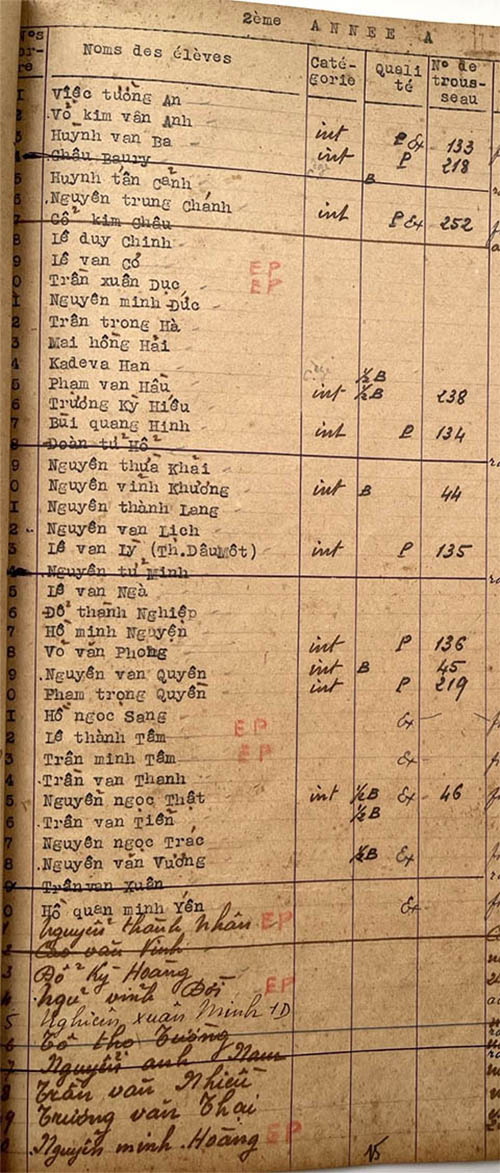 2ème ANNEE A
Nos Noms des élèves Caté- Quali N° de
or- gorie té trous-
re seau
1 Việc tường An
2 Võ kim vân Anh
3 Huỳnh van Ba int P Ex 133
4 Châu Baury int P 218
5 Huỳnh tấn Cảnh B
6 Nguyễn trung Chánh
7 Cổ kim Châu int P Ex 252
8 Lê duy Chinh
9 Lê van Cổ EP
0 Trần xuân Dục EP
1 Nguyễn minh Đức
2 Trần trong Hà
3 Mai hồng Hải
4 Kadeva Han
5 Pham van Hầu ½B
6 Trương Kỳ Hiếu int ½B 238
7 Bùi quang Hinh
8 Đoàn tử Hổ int P 134
9 Nguyễn thừa Khải
0 Nguyễn vỉnh Khương int B 44
1 Nguyễn thành Lang
2 Nguyễn van Lich
3 Lê van Lỳ (Th.DầuMột) int P 135
4 Nguyễn tử Minh
5 Lê van Ngà
6 Đổ thành Nghiệp
7 Hồ minh Nguyện
8 Võ văn Phong int P 136
9 Nguyễn van Quyền int B 45
0 Pham trọng Quyền int P 219
1 Hồ ngoc Sang Ex
2 Lê thành Tâm EP
3 Trần minh Tâm EP Ex
4 Trần van Thanh
5 Nguyễn ngọc Thật int ½B Ex 46
6 Trần van Tiền ½B
7 Nguyễn ngọc Trác
8 Nguyễn văn Vương ½B Ex
9 Trần van Xuân
0 Hồ quan minh Yến Ex
1 Nguyễn thành Nhân EP
2 Cao văn Vinh
3 Đỗ Kỳ Hoàng
4 Ngư vinh Đời EP
5 Nghiêm xuân Minh
6 Tô tho Tường
7 Nguyễn anh Nam
8 Trần văn Nhiều
9 Trương văn Thai
0 Nguyễn minh Hoàng EP